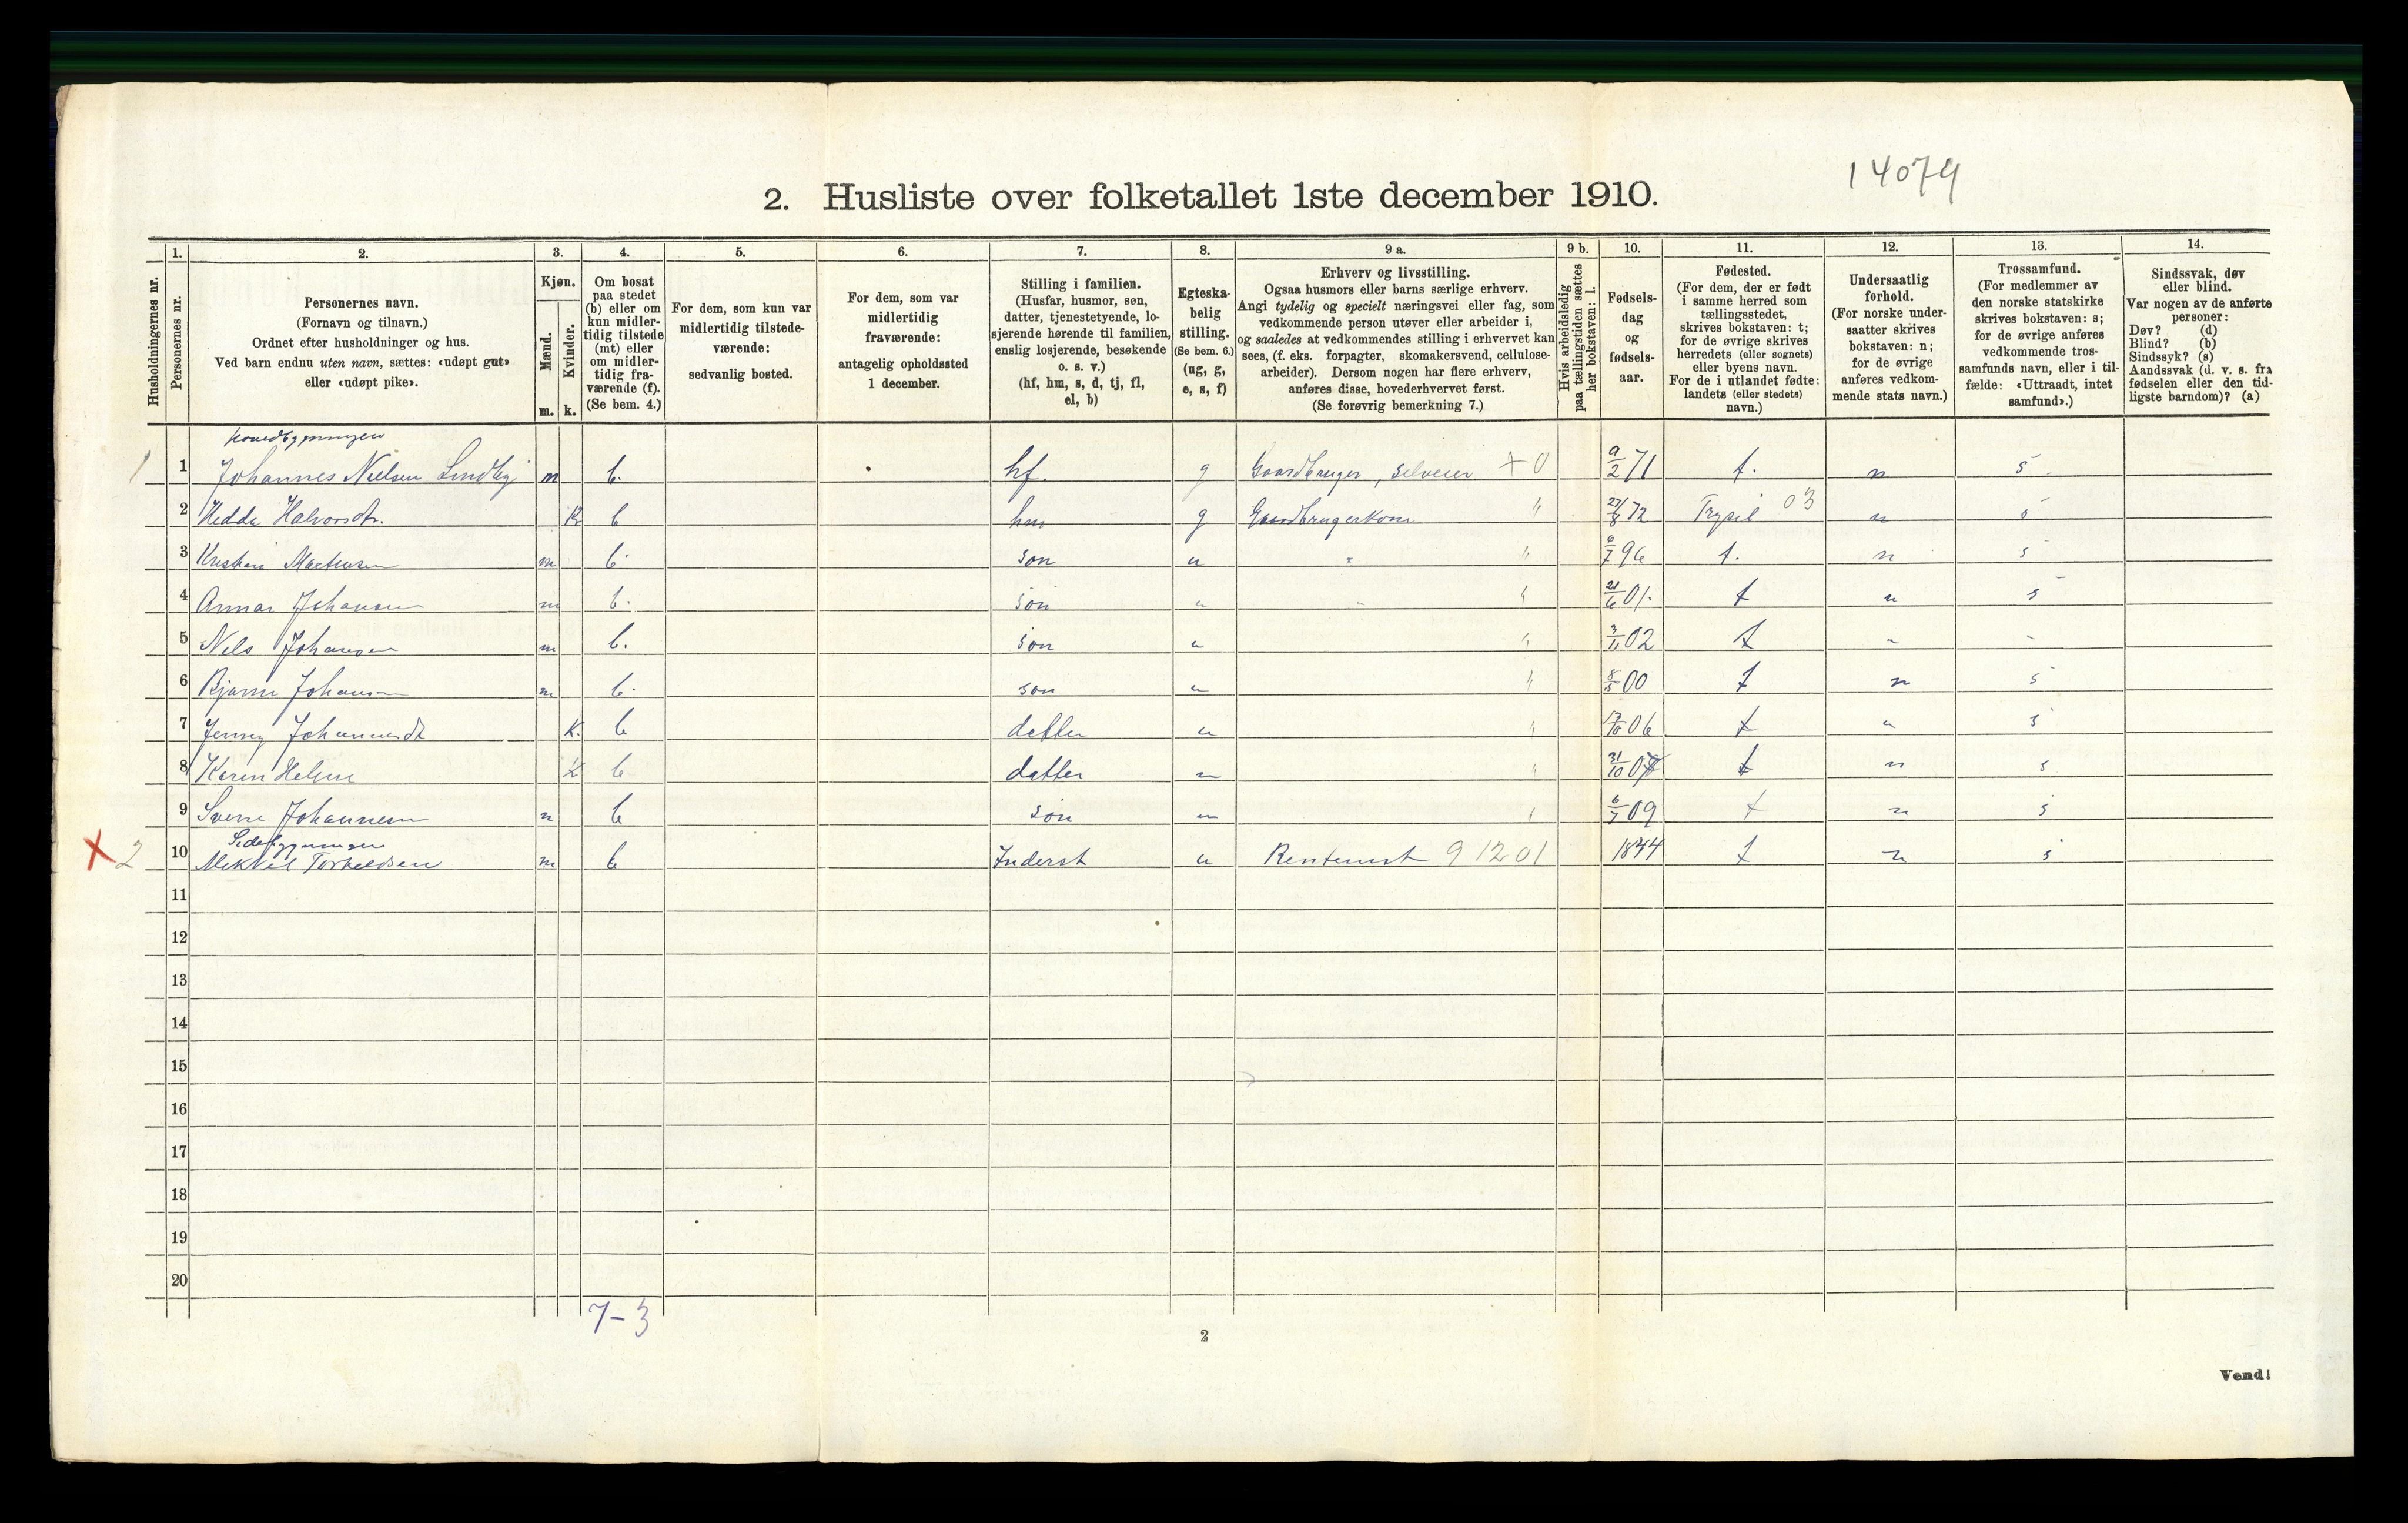 14079
2. Husliste over folketallet 1ste december 1910.
1. 2. 3. 4. 5. 6. 7. 8. 9 a. 9 b. 10. 11. 12. 13. 14.
Husholdningernes nr.
Personernes nr.
Personernes navn.
(Fornavn og tilnavn.)
Ordnet efter husholdninger og hus.
Ved barn endnu uten navn, sættes: «udøpt gut»
eller «udøpt pike».
Kjøn.
Mænd.
Kvinder.
m. k.
Om bosat
paa stedet
(b) eller om
kun midler-
tidig tilstede
(mt) eller
om midler-
tidig fra-
værende (f).
(Se bem. 4.)
For dem, som kun var
midlertidig tilstede-
værende:
sedvanlig bosted.
For dem, som var
midlertidig
fraværende:
antagelig opholdssted
1 december.
Stilling i familien.
(Husfar, husmor, søn,
datter, tjenestetyende, lo-
sjerende hørende til familien,
enslig losjerende, besøkende
o. s. v.)
(hf, hm, s, d, tj, fl,
el, b)
Egteska-
belig
stilling.
(Se bem. 6.)
(ug, g,
e, s, f)
Erhverv og livsstilling.
Ogsaa husmors eller barns særlige erhverv.
Angi tydelig og specielt næringsvei eller fag, som
vedkommende person utøver eller arbeider i,
og saaledes at vedkommendes stilling i erhvervet kan
sees, (f. eks. forpagter, skomakersvend, cellulose-
arbeider). Dersom nogen har flere erhverv,
anføres disse, hovederhvervet først.
(Se forøvrig bemerkning 7.)
Hvis arbeidsledig
paa tællingstiden sættes
her bokstaven: l.
Fødsels-
dag
og
fødsels-
aar.
Fødested.
(For dem, der er født
i samme herred som
tællingsstedet,
skrives bokstaven: t;
for de øvrige skrives
herredets (eller sognets)
eller byens navn.
For de i utlandet fødte:
landets (eller stedets)
navn.)
Undersaatlig
forhold.
(For norske under-
saatter skrives
bokstaven: n;
for de øvrige
anføres vedkom-
mende stats navn.)
Trossamfund.
(For medlemmer av
den norske statskirke
skrives bokstaven: s;
for de øvrige anføres
vedkommende tros-
samfunds navn, eller i til-
fælde: «Uttraadt, intet
samfund».)
Sindssvak, døv
eller blind.
Var nogen av de anførte
personer:
Døv? (d)
Blind? (b)
Sindssyk? (s)
Aandssvak (d. v. s. fra
fødselen eller den tid-
ligste barndom)? (a)
Hovedbygningen
1 1 Johannes Nielsen Lindby m b. hf. g Gaardbruger, selveier +0 9/2 71 t. n s
2 Hedda Halvorsdtr. K b hm g Gaardbrugerkone " 27/8 72 Trysil 03 n s
3 Kristian Martinsen m b. søn u " " 6/7 96 t. n s
4 Annar Johansen m b. søn u " " 21/6 01. t n s
5 Nels Johansen m b. søn u " 3/11 02 t " "
6 Bjarne Johansen m b. søn u " 8/5 00 t n s
7 Jenny Johannesdt K. b datter u " 17/10 06 t n s
8 Karen Helene K b datter u " 31/10 07 t n s
9 Sverre Johannesen m b søn u " 6/7 09 t n s
Sidebygningen
X 2 10 Mekkel Torkeldsen m b Inderst u Rentenist 9 12 01 1844 t n s
11
12
13
14
15
16
17
18
19
20
7-3
2
Vend!